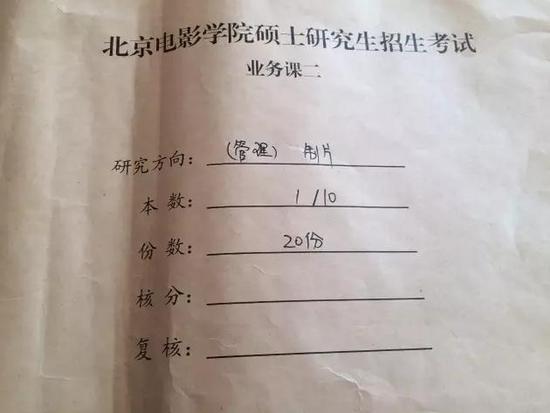 北京电影学院硕士研究生招生考试
业务课二
研究方向：（管理） 制片
本数：1/10
份数：20份
核分：
复核：